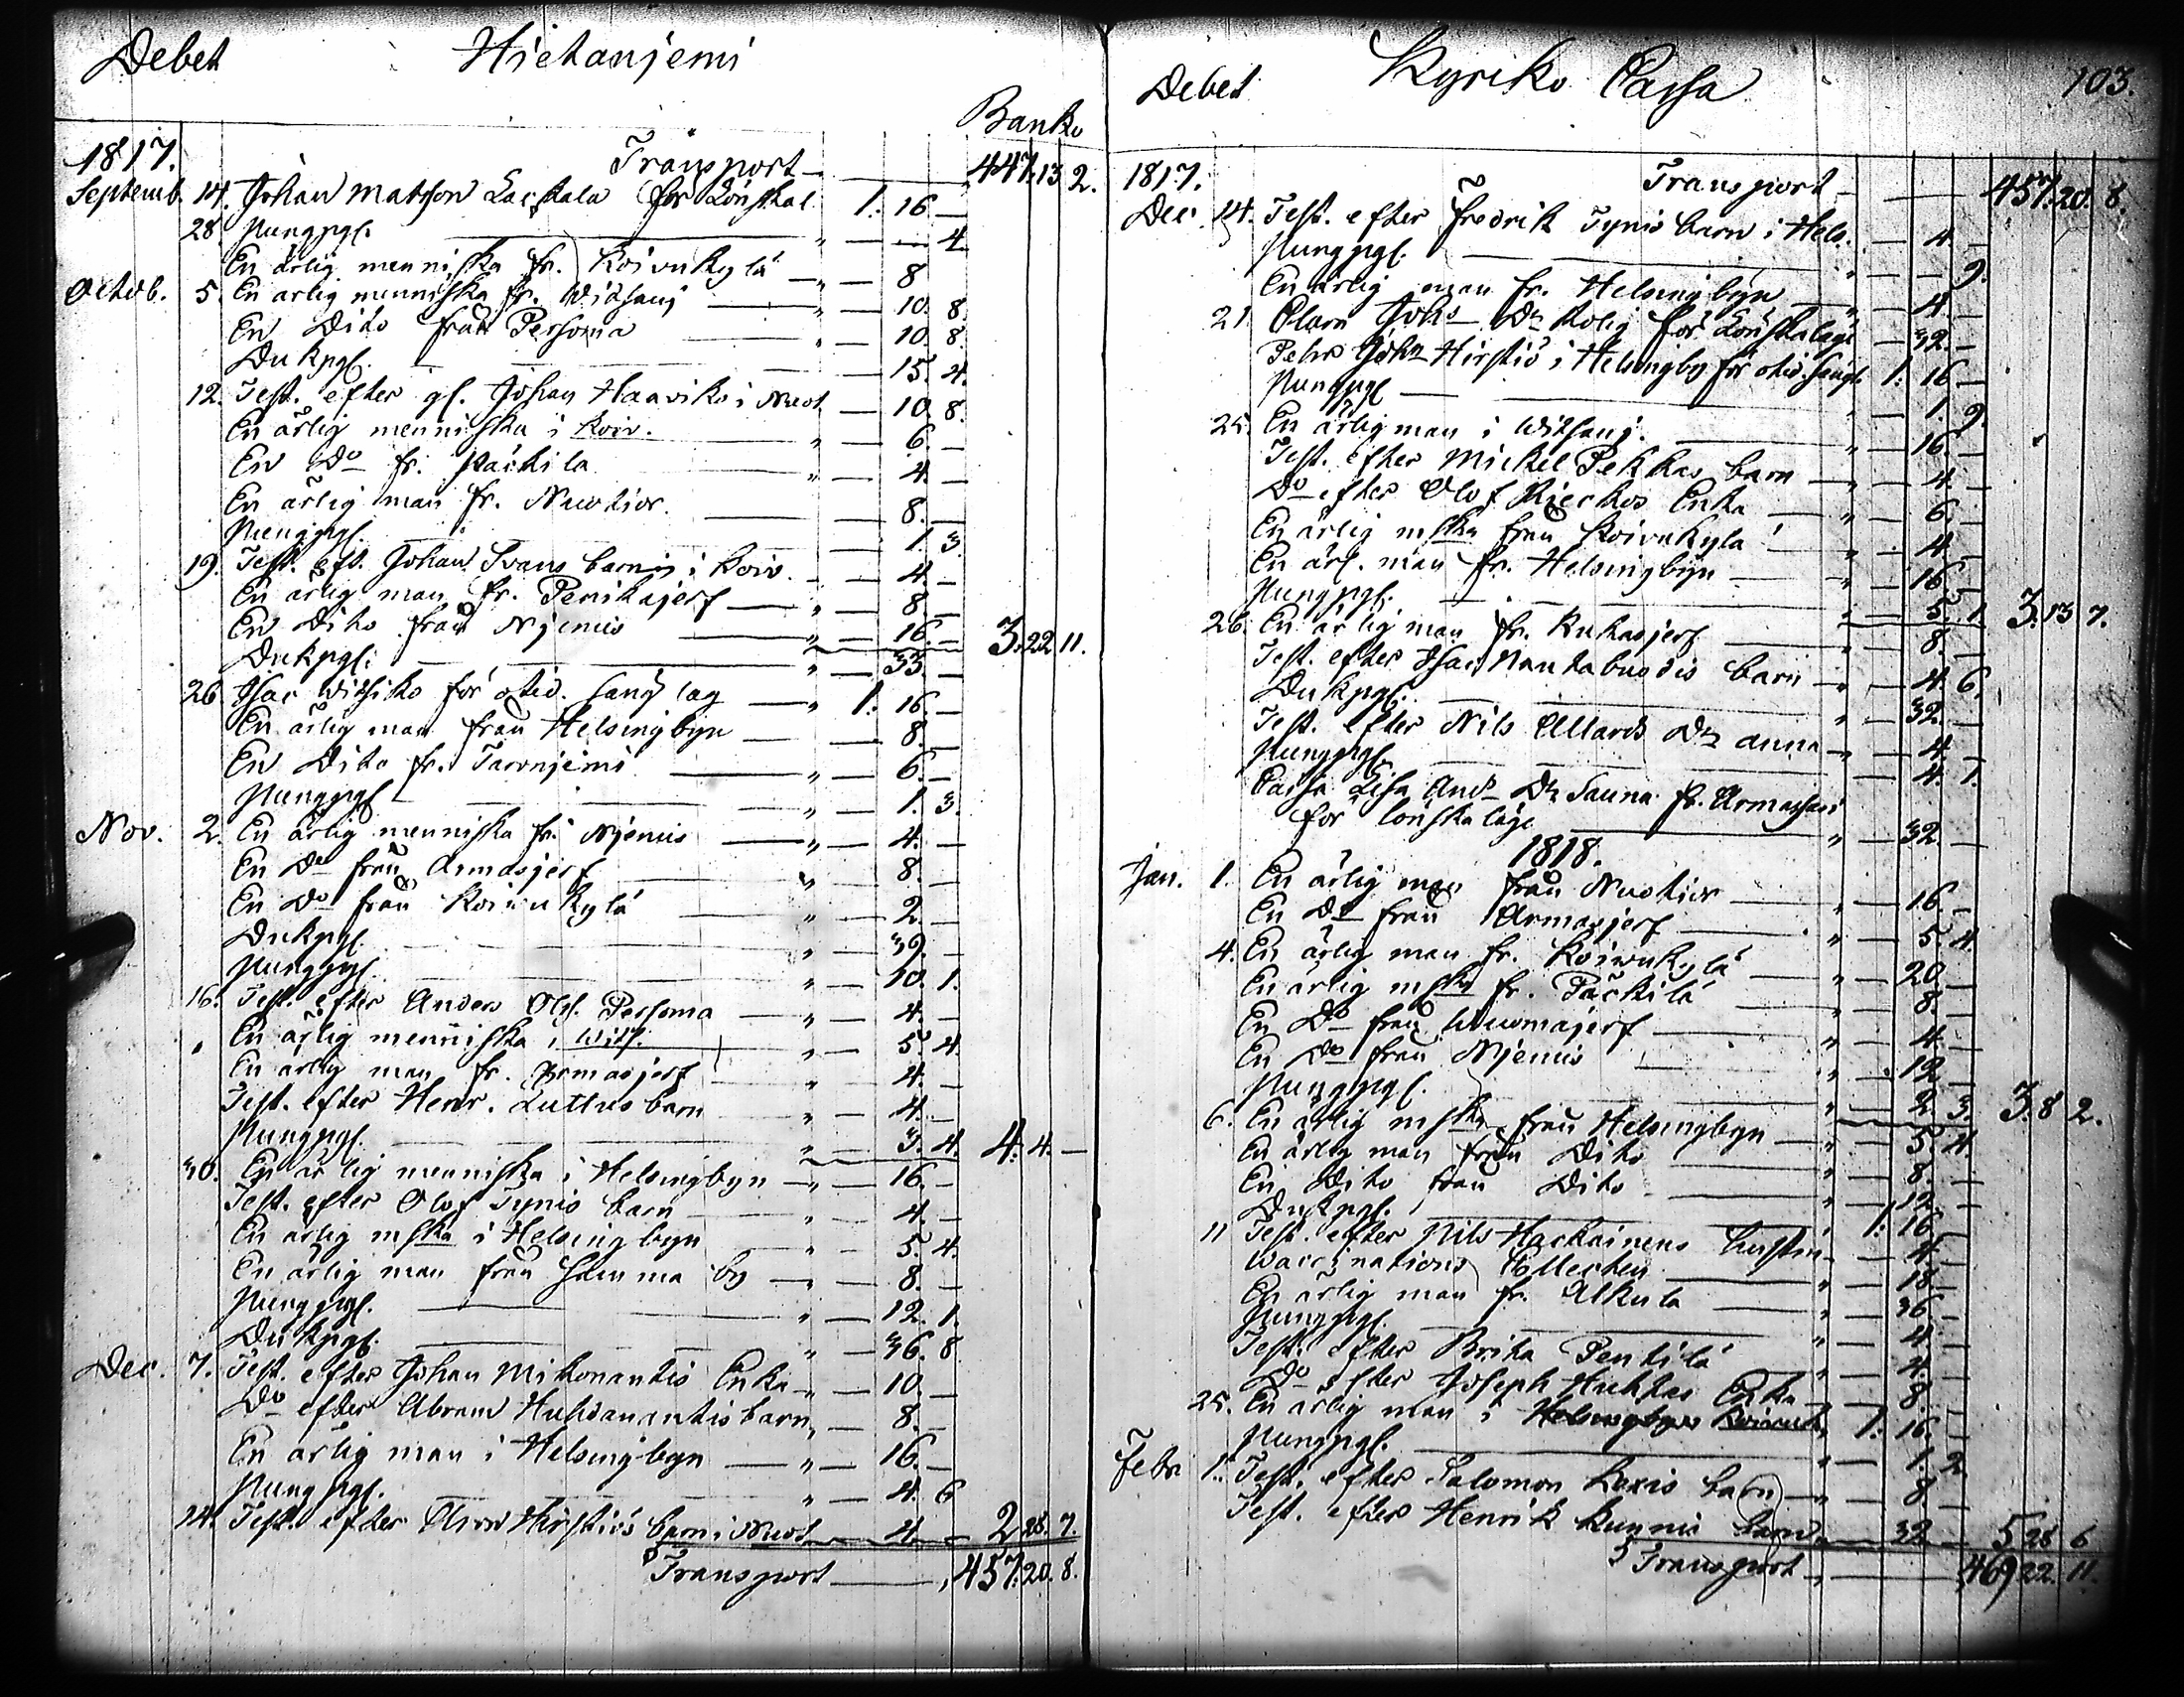 Debet Hietanjemi
Banko
1817. Transport 447. 13 2.
Septemb. 14. Johan Matsson för Lönskal. 1. 16 —
28. Pungpgr. " — — 4
En ärlig menniska fr. Koivukylä " — 8
Octob. 5. En ärlig menniska fr. Witsanj " — 10. 8.
En Dito från Persoma " — 10. 8.
Dukpgr. — 15. 4.
12. Test. efter gl. Johan Haaviko i Nuot — 10. 8.
En ärlig menniska i Koiv. " — 6. —
En Do fr. Päckila " — 4. —
En ärlig man fr. Nuotior. — 8. —
Pungpgr. — 1. 3.
19. Test. eft. Johan Svans barn i Koiv. — 4. —
En ärlig man fr. Penikajerf " — 8. —
En Dito från Njemis " — 16. — 3. 22 11.
Dukpgr. " — 33. —
26 Isac Witsiko för otid. sänglag " 1. 16. —
En ärlig man från Helsingbyn — 8. —
En Dito fr. Taronjemi " — 6. —
Pungpgr. " — 1. 3.
Nov. 2. En ärlig menniska fr. Njemis " — 4. —
En Do från Armasjerf " — 8. —
En Do från Koivukylä " — 2. —
Dukpgr. " — 39. —
Pungpgr. " — 10. 1.
16. Test. efter Anders Ols. Persoma " — 4. —
En ärlig menniska i Wits. " — 5. 4.
En ärlig man fr. Armasjerf " — 4. —
Test. efter Henr. Luttus barn " — 4. —
Pungpgr. " — 3. 4. 4. 4. —
30. En ärlig menniska i Helsingbyn " — 16. —
Test. efter Olof Tynis barn " — 4. —
En ärlig mska i Helsingbyn " — 5. 4.
En ärlig man från by " — 8. —
Pungpgr. " — 12. 1.
Dukpgr. " — 36. 8
Dec. 7. Test. efter Johan Mikonantis Enka " — 10. —
Do efter Abram Huhdanantis barn " — 8. —
En ärlig man i Helsingbyn " — 16. —
Pungpgr. " — 4. 6
14. Test. efter Hirstiös barn i Nuot — 4 — 2 28. 7.
Transport 457. 20. 8.
Debet Kyrko Cassa 103.
1817. Transport 457. 20. 8.
Dec. 14. Test. efter Fredrik Tynis barn i Hels. — 4. —
Pungpgr. " — — 9.
En ärlig man fr. Helsingbyn " — 4. —
21. Johs Dr Kolij för Lönskaläge — 32. —
Pehr Johs Hirstiö i Helsingby för otid. sängl. 1. 16 —
Pungpgr " — 1. 9.
25. En ärlig man i Witsanj. " — 16. —
Test. efter Mickel Pekkas barn " — 4. —
Do efter Olof Enka " — 6. —
En ärlig mska från Koivukylä " — 4. —
En ärl. man fr. Helsingbyn " — 16 —
Pungpgr. " — 5. 1. 3. 13 7.
26. En ärlig man fr. Kukasjerf — 8. —
Test. efter Isac barn " — 4. 6.
Dukpgr. " — 32. —
Test. efter Nils Dr Anna " — 4. —
Pungpgr. — 4. 1.
Lisa And. Dr Sauna fr. Armassari
för lönskaläge " — 32. —
1818.
Jan. 1. En ärlig man från Nuotior " — 16. —
En Do från Armasjerf " — 5. 4
4. En ärlig man fr. Koivukylä — 20. —
En ärlig mska fr. Päckilä " — 8. —
En Do från " — 4. —
En Do från Njemis " — 12 —
Pungpgr. " — 2. 3. 3. 8 2.
6. En ärlig mska från Helsingbyn " — 5. 4.
En ärlig man från Dito " — 8. —
En Dito från Dito " — 12. —
Dukpgr. " 1. 16 —
11 Test. efter Nils Hustru — 4. —
Waccinations Collecten " — 18. —
En ärlig man fr. Alkula " — 36 —
Pungpgr. " — 4. —
Test. efter Brita Pentilä " — 4. —
Do efter Joseph Huhtas Enka " — 8. —
25. En ärlig man i 1. 16. —
Pungpgr. " — 1. 2.
Febr. 1. Test. efter Salomon Lexis barn " — 8. —
Test. efter Henrik Kunnis barn — 32 — 5 28 6
Transport " 469 22. 11.